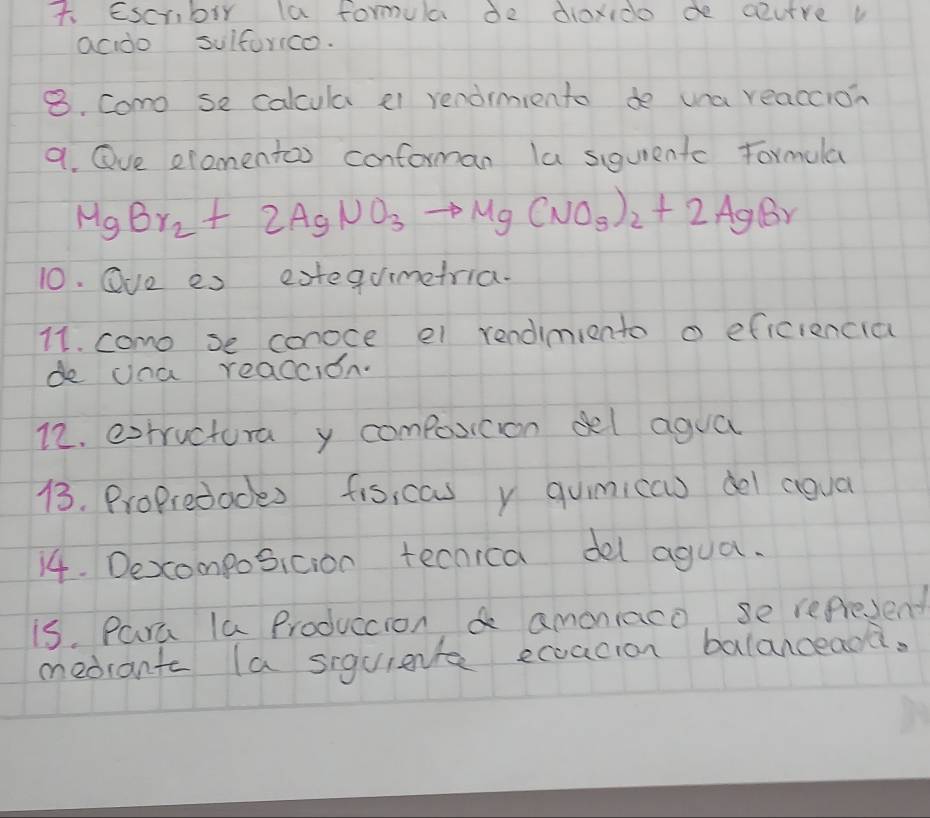 7. Escribir la formula de dioxido de azufre y
acido sulfurico.
8. como se calcula el rendimiento de una reaccion
9. Que elementos conforman la siguiente Formula
MgBr₂ + 2AgNO₃ → Mg(NO₃)₂ + 2AgBr
10. Que es estequimetria.
11. como se conoce el rendimiento o eficiencia
de una reacción.
12. estructura y composicion del agua
13. Propiedades fisicas y quimicas del agua
14. Descomposicion tecnica del agua.
15. Para la Produccion de amoniaco se represent
mediante la siguiente ecuacion balanceada.